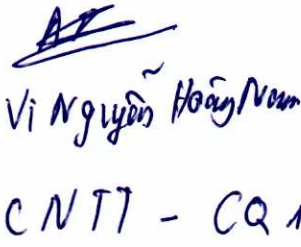 Vi Nguyễn Hoàng Nam
CNTT - CQ